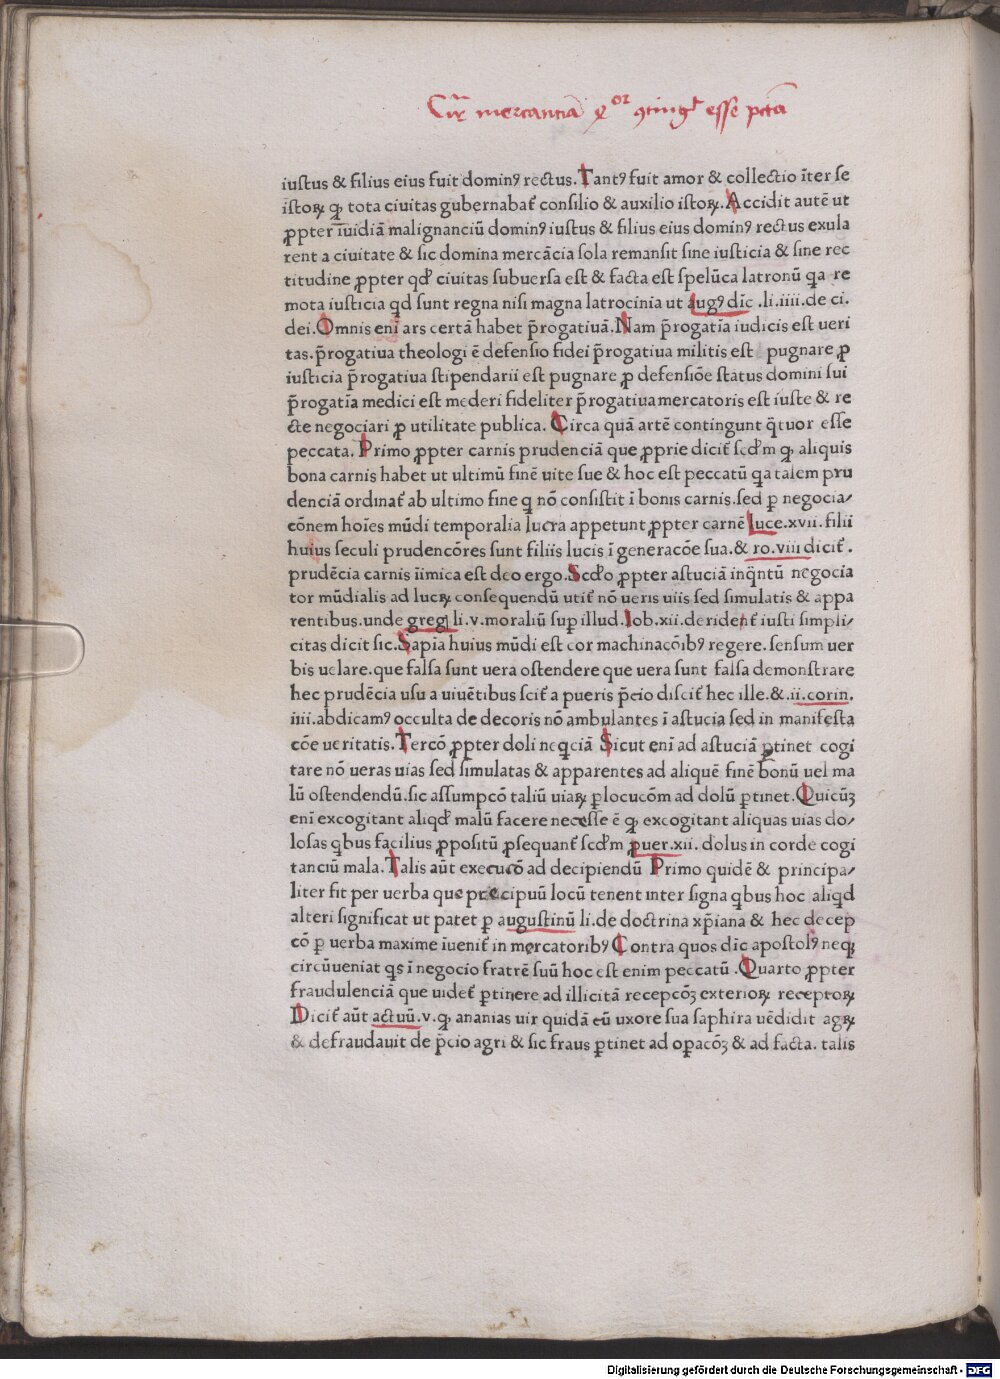 Circa mercantiā qͦꝛ ꝯtingūt esse pctā
iustus & filius eius fuit dominꝰ rectus. Tantꝰ fuit amor & collectio īter se
istoꝝ ꝙ tota ciuitas gubernabat᷑ consilio & auxilio istoꝝ. Accidit autē ut
ꝓpter īuidiā malignanciū dominꝰ iustus & filius eius dominꝰ rectus exula
rent a ciuitate & sic domina mercācia sola remansit sine iusticia & sine rec
titudine ꝓpter qđ ciuitas subuersa est & facta est spelūca latronū qa re
mota iusticia qd sunt regna nisi magna latrocinia ut augꝰ dīc .li.iiii.de ci.
dei. Omnis enī ars certā habet p̄rogatiuā. Nam p̄rogatīa iudicis est ueri
tas. p̄rogatiua theologi ē defensio fidei p̄rogatiua militis est pugnare ꝓ
iusticia p̄rogatiua stipendarii est pugnare ꝓ defensiōe status domini sui
p̄rogatīa medici est mederi fideliter p̄rogatiua mercatoris est iuste & re
cte negociari ꝓ utilitate publica. Circa quā artē contingunt q̄tuor esse
peccata. Primo ꝓpter carnis prudenciā que ꝓprie dicit᷑ scd̄m ꝙ aliquis
bona carnis habet ut ultimū finē uite sue & hoc est peccatū qa talem pru
denciā ordinat᷑ ab ultimo fine q nō consistit ī bonis carnis. sed ꝑ negocia/
cōnem hoīes mūdi temporalia lucra appetunt ꝓpter carnē Luce.xvii. filii
huius seculi prudencōres sunt filiis lucis ī generacōe sua. & ro.viii dicit᷑.
prudēcia carnis īimica est deo ergo. Scd̄o ꝓpter astuciā inq̄ntū negocia
tor mūdialis ad lucꝝ consequendū utit᷑ nō ueris uiis sed simulatis & appa
rentibus. unde greḡ li.v. moraliū suꝑ illud. Iob.xii. deridet᷑ iusti simpli/
citas dicit sic. Sapīa huius mūdi est cor machinacōibꝰ regere. sensum uer
bis uelare. que falsa sunt uera ostendere que uera sunt falsa demonstrare
hec prudēcia usu a uiuētibus scit᷑ a pueris p̄cio discit᷑ hec ille. &. ii.corin.
iiii. abdicamꝰ occulta de decoris nō ambulantes ī astucia sed in manifesta
cōe ueritatis. Tercō ꝓpter doli neqciā Sicut enī ad astuciā ꝑtinet cogi
tare nō ueras uias sed simulatas & apparentes ad aliquē finē bonū uel ma
lū ostendendū. sic assumpcō taliū uiaꝝ ꝑ locucōm ad dolū ꝑtinet. Quicūꝫ
enī excogitant aliqđ malū facere necesse ē ꝙ excogitant aliquas uias do/
losas qbus facilius ꝓpositū ꝓsequant᷑ scd̄m ꝓuer.xii. dolus in corde cogi
tanciū mala. Talis aūt execucō ad decipiendū Primo quidē & principa/
liter fit per uerba que precipuū locū tenent inter signa qbus hoc aliqd
alteri significat ut patet ꝑ augustinū li.de doctrina xp̄iana & hec decep
cō ꝑ uerba maxime īuenit᷑ in mercatoribꝰ Contra quos dīc apostolꝰ neqꝫ
circūueniat qs ī negocio fratrē suū hoc est enim peccatū. Quarto ꝓpter
fraudulenciā que uidet᷑ ꝑtinere ad illicitā recepcōꝫ exterioꝝ receptoꝝ
Dicit᷑ aūt actuū.v. ꝙ ananias uir quidā cū uxore sua saphira uēdidit agꝝ
& defraudauit de p̄cio agri & sic fraus ꝑtinet ad oꝑacōꝫ & ad facta. talis
Digitalisierung gefördert durch die Deutsche Forschungsgemeinschaft - DFG